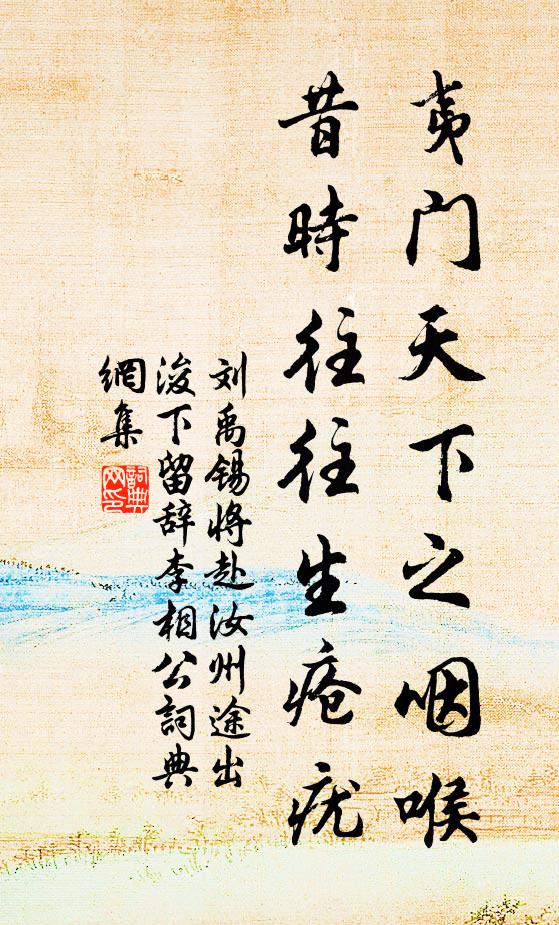 夷门天下之咽喉
昔時往往生疮疣
刘禹锡将赴汝州途出
浚下留辞李相公詞典
網集
詞典
网印